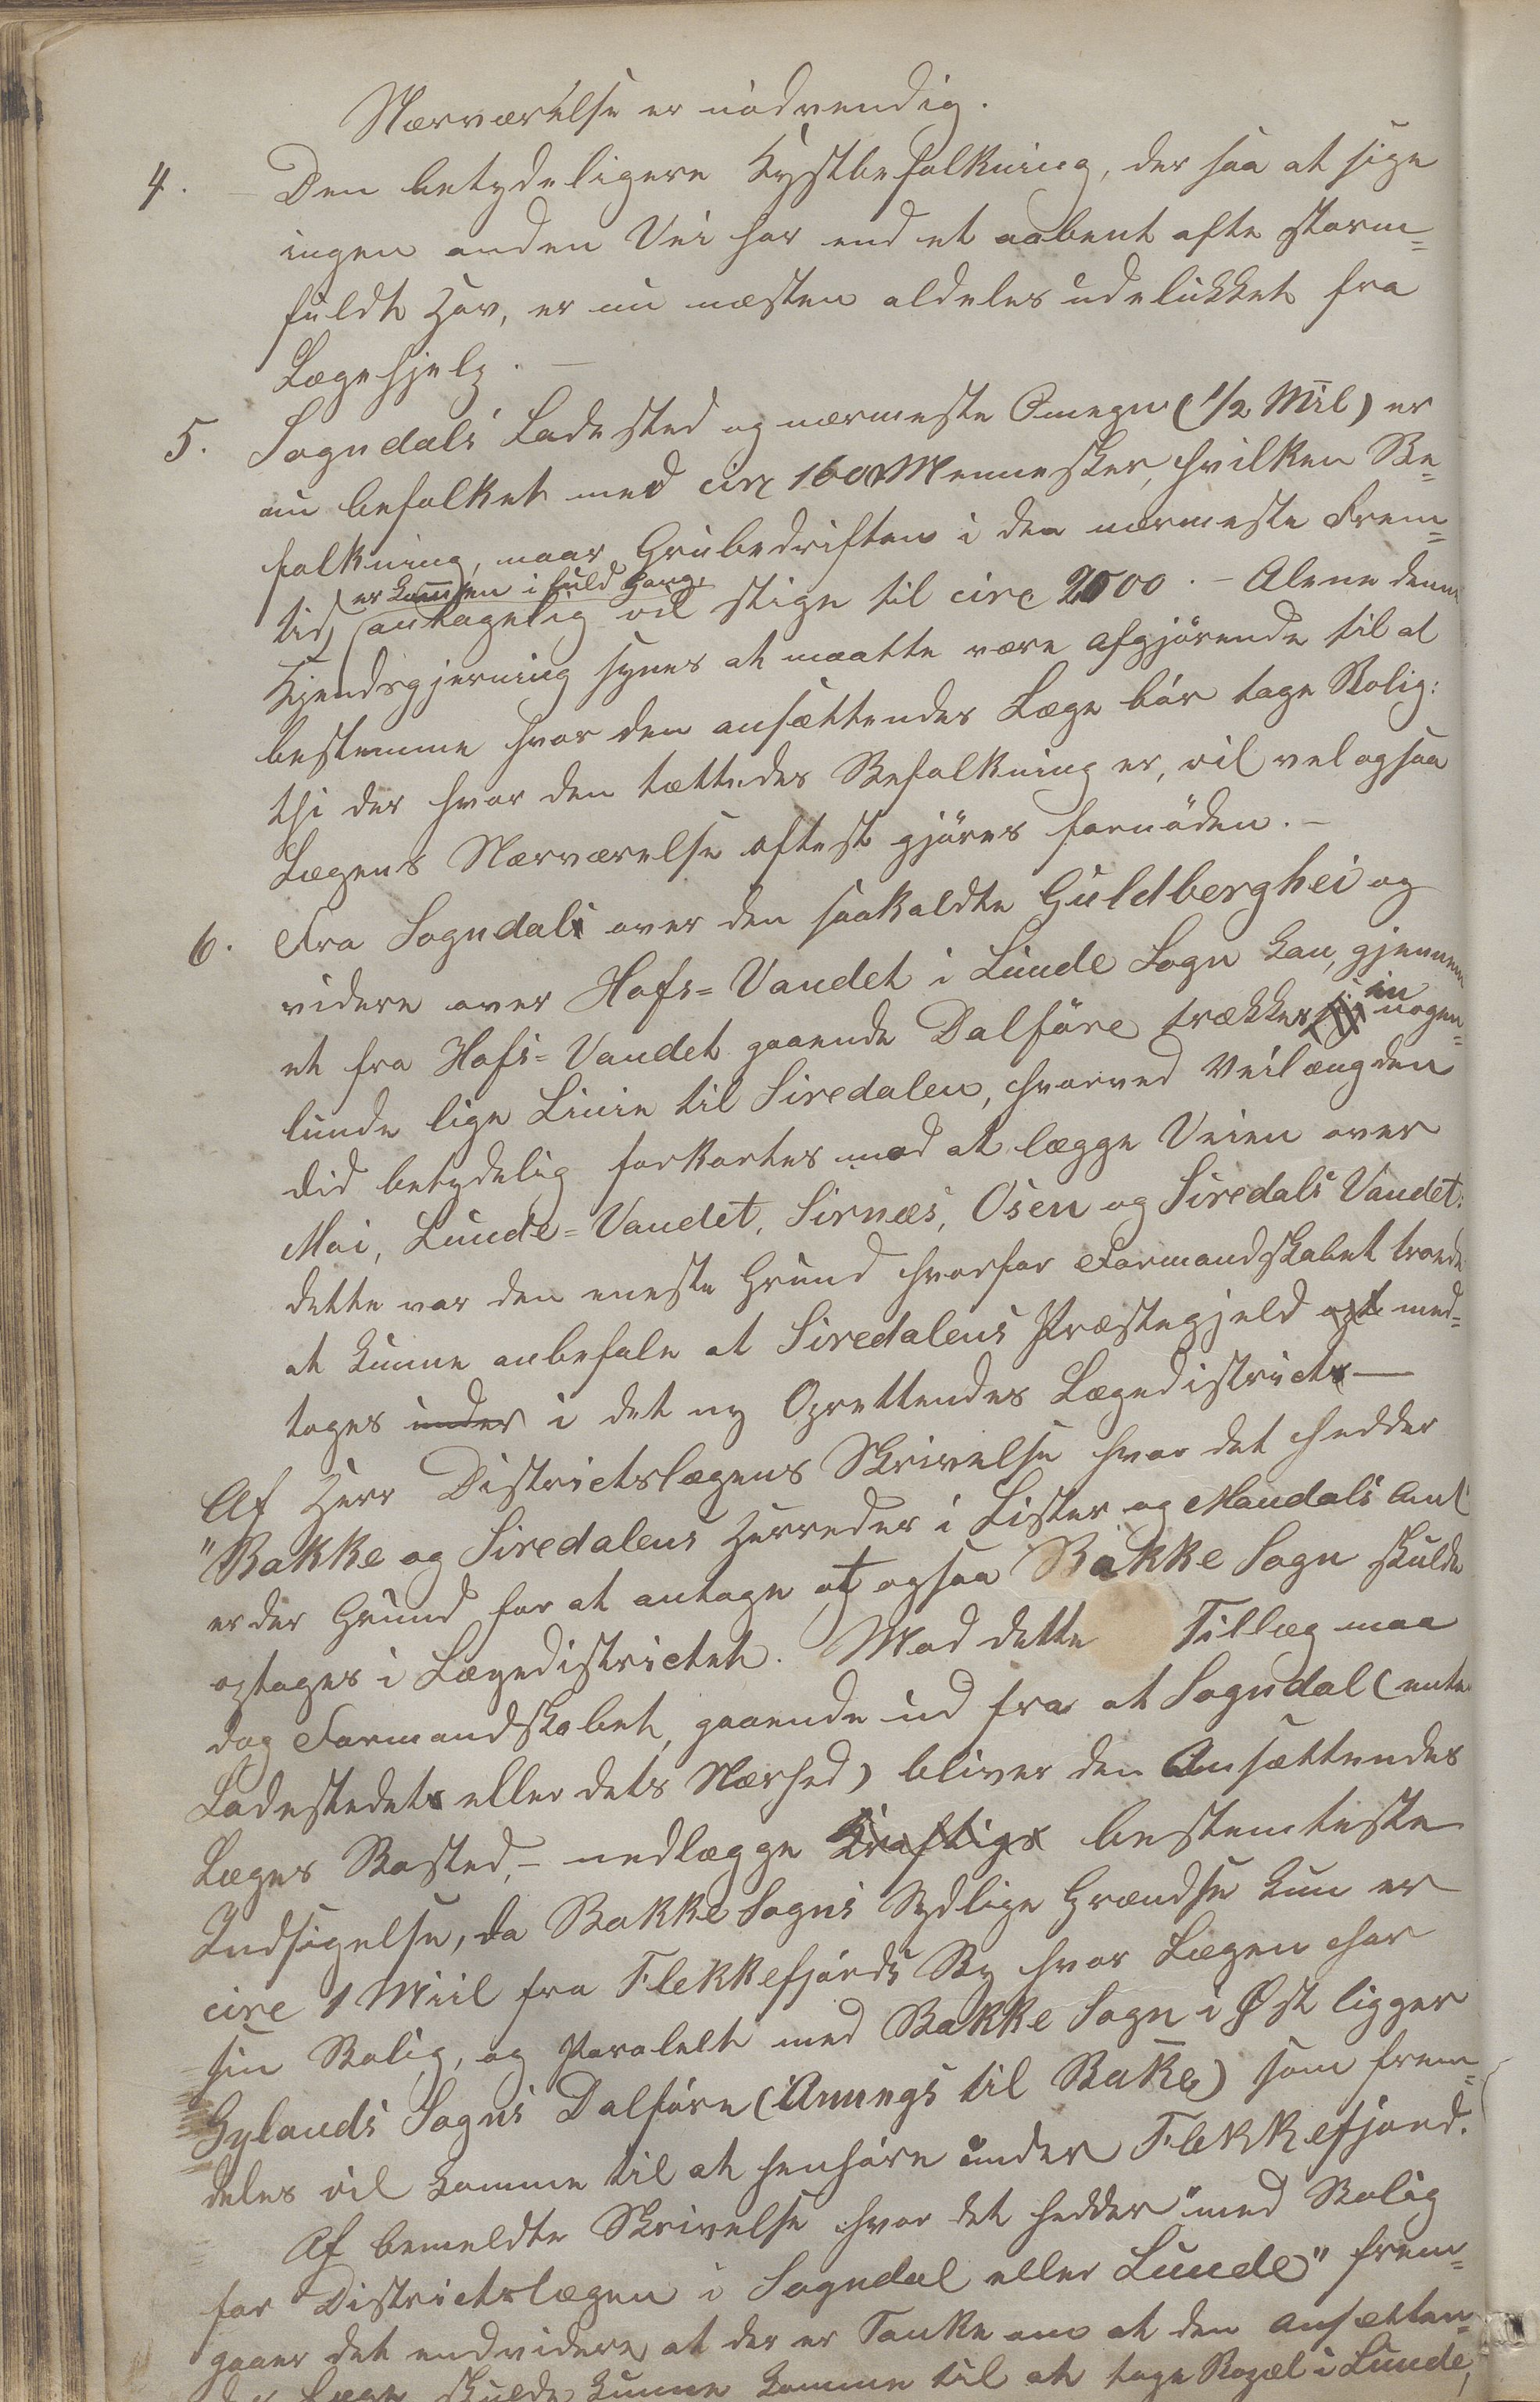 Nærværelse er nödvendig.
4. Den betydeligere Kystbefolkning, der saa at sige
ingen anden Vei har end et aabent ofte storm=
fuldt Hav, er nu næsten aldeles udelukket fra
Lægehjelp. –
5. Sogndals Ladested og nærmeste Omegn (1/2 Mil) er
nu befolket med circ 1600 Mennesker, hvilken Be=
folkning, naar Grubedriften i den nærmeste Frem=
er kommen i fuld Gang,
tid antagelig vil stige til circ 2500. – Alene denne
Kjendsgjerning synes at maatte være afgjörende til at
bestemme hvor den ansættendes Læge bör tage Bolig:
thi der hvor den tættedes Befolkning er, vil vel ogsaa
Lægens Nærværelse oftest gjöres fornöden. –
6. Fra Sogndal over den saakaldte Guldberghei og
videre over Hofs=Vandet i Lunde Sogn kan, gjennem
et fra Hofs=Vandet gaaende Dalföre trækkes en nogen=
lunde lige Linie til Siredalen, hvorved Veilængden
did betydelig forkortes mod at lægge Veien over
Moi, Lunde=Vandet, Sirnæs, Osen og Siredals Vandet:
dette var den eneste Grund hvorfor Formandskabet troede
at kunne anbefale at Siredalens Præstegjeld med=
toges under i det ny Oprettendes Lægedistrict –
Af Herr Districtslægens Skrivelse hvor det hedder
"Bakke og Siredalens Herreder i Lister og Mandals Amt
er der Grund for at antage at ogsaa Bakke Sogn skulde
optages i Lægedistrictet. Mod dette Tillæg maa
dog Formandskabet, gaaende ud fra at Sogndal (enten
Ladestedet eller dets Nærhed) bliver den Ansættendes
Læges Bosted, – nedlægge Kraftigs bestemteste
Indsigelse, da Bakke Sogns Sydlige Grændse kun er
circ 1 Miil fra Flekkefjords By hvor Lægen har
sin Bolig, og Paralelt med Bakke Sogn i Øst ligger
Gylands Sogns Dalföre (Annegs til Bakke) som frem=
deles vil komme til at henhöre under Flekkefjord.
Af bemeldte Skrivelse hvor det hedder "med Bolig
for Districtslægen i Sogndal eller Lunde" frem=
gaaer det endvidere, at der er Tanke om at den ansætten=
des Læge skulde kunne komme til at tage Bopæl i Lunde,